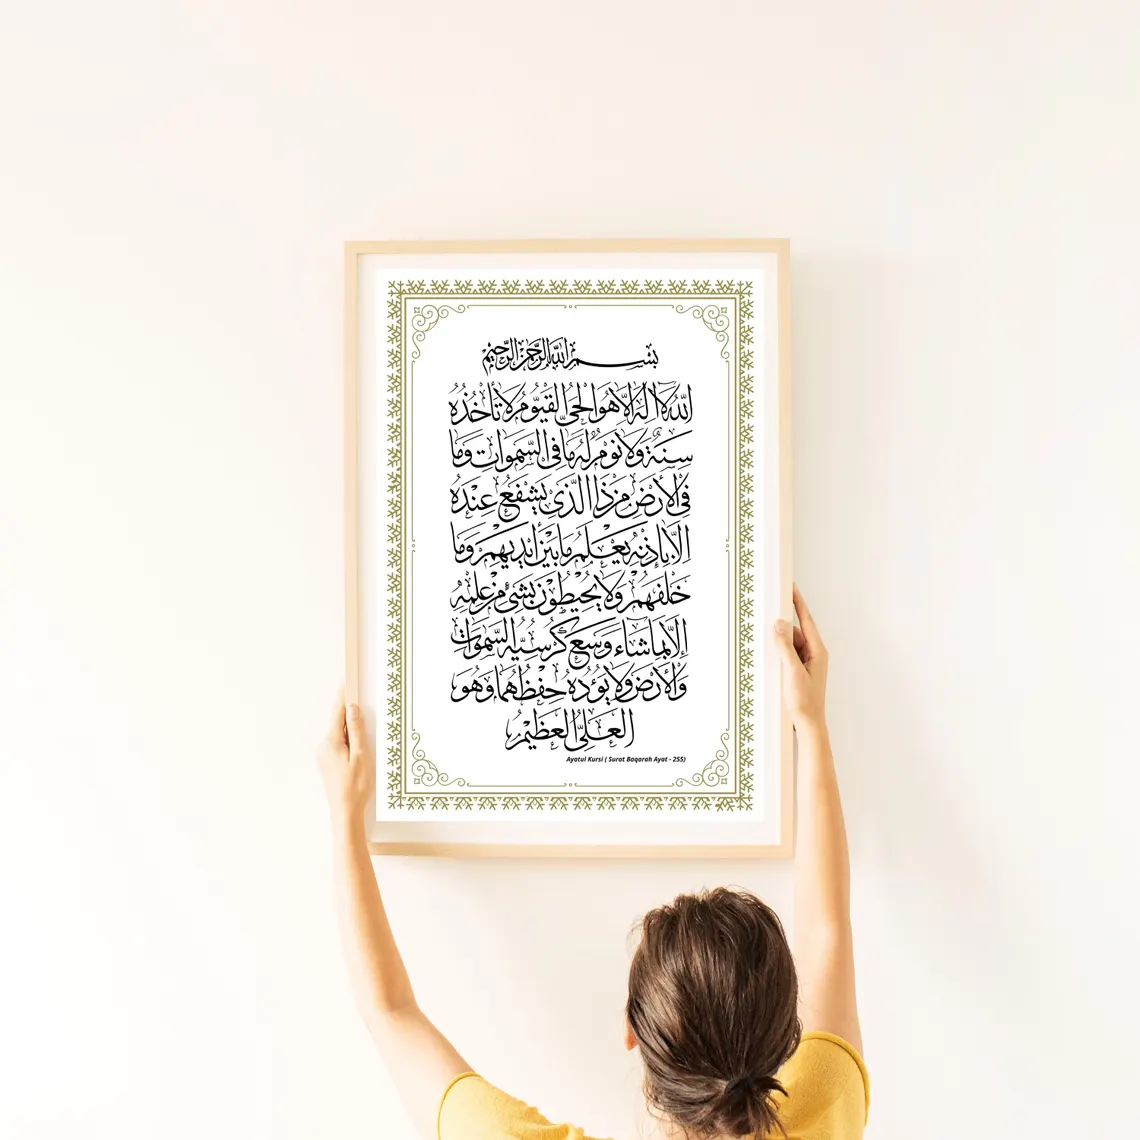 بسم الله الرحمن الرحيم
اللّٰه لا اله الا هو الحي القيوم لا تأخذه
سنة ولا نوم له ما في السموات وما
في الارض من ذا الذي يشفع عنده
الا باذنه يعلم ما بين ايديهم وما
خلفهم ولا يحيطون بشئ من علمه
إلا بما شاء وسع كرسيه السموات
والأرض ولا يؤده حفظهما وهو
العلي العظيم
Ayatul Kursi ( Surat Baqarah Ayat - 255)